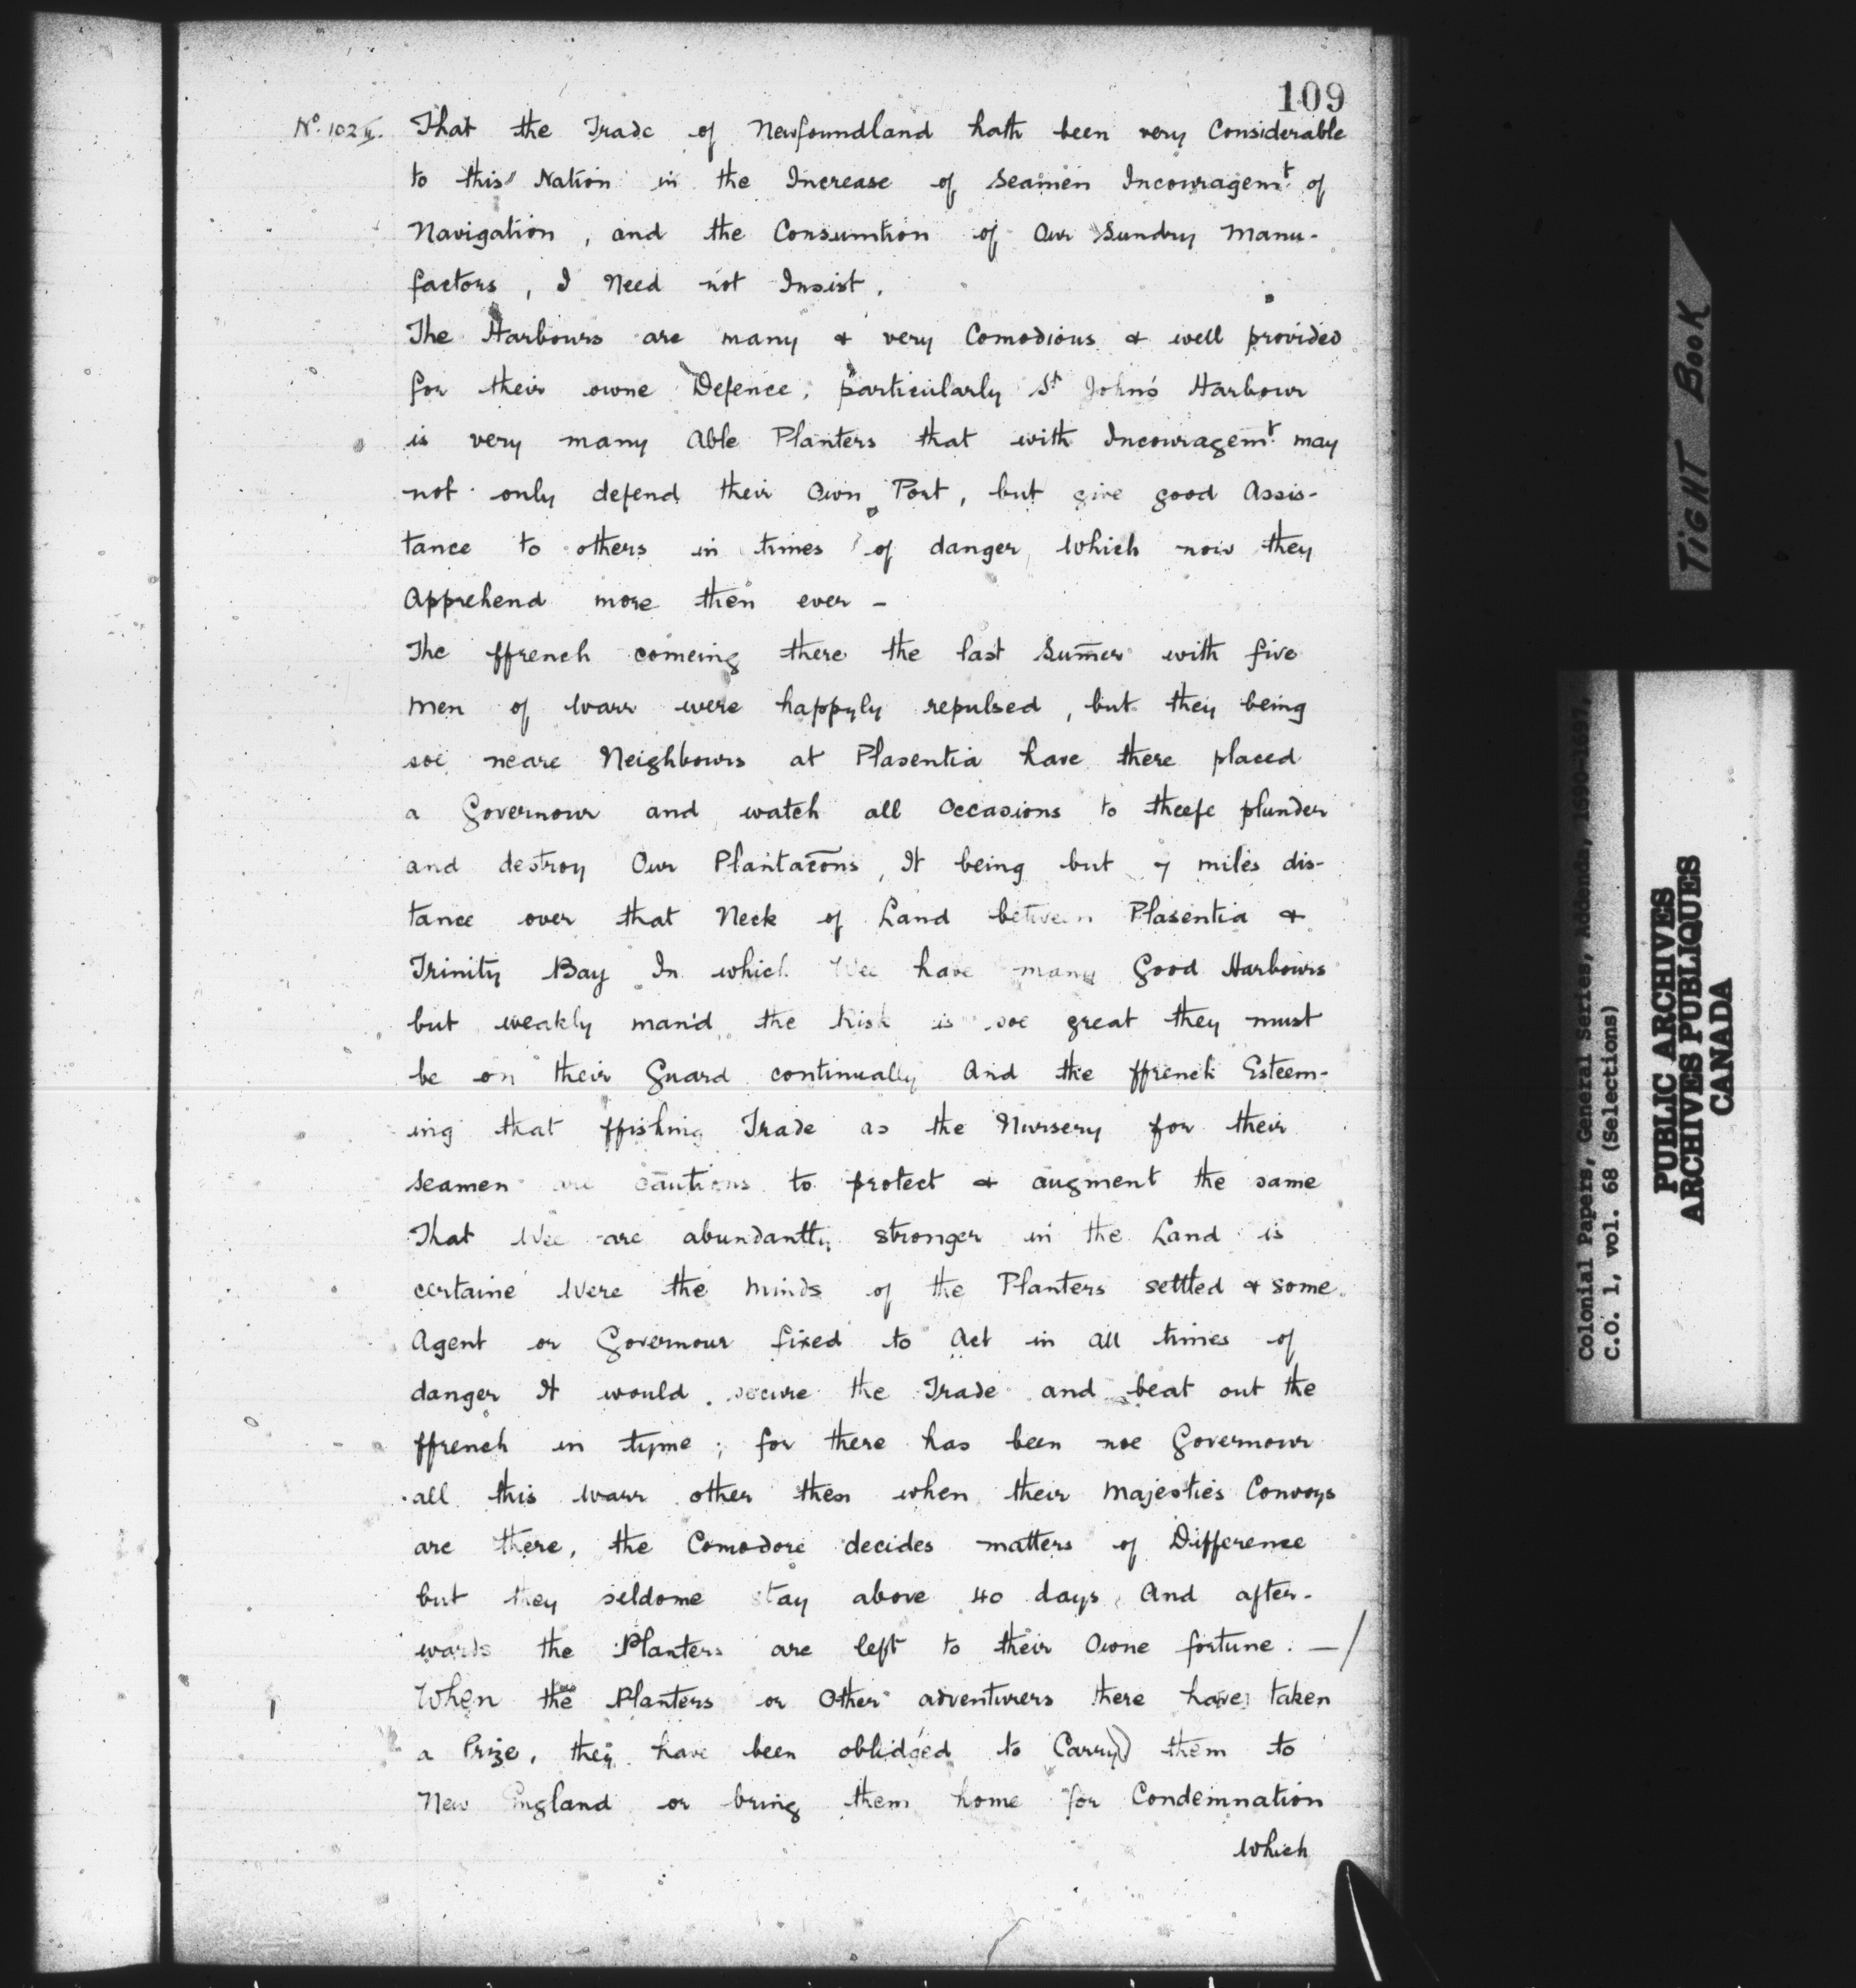 109
No. 102 II. That the Trade of Newfoundland hath been very Considerable
to this Nation in the Increase of Seamen Incouragemt. of
Navigation, and the Consumtion of Our Sundry Manu-
factors, I Need not Insist.
The Harbours are many & very Comodious & well provided
for their owne Defence, particularly St John's Harbour
is very many Able Planters that with Incouragemt. may
not only defend their Own Port, but give good Assis-
tance to others in times of danger which now they
Apprehend more then ever -
The ffrench comeing there the last Sum̄er with five
Men of Warr were happyly repulsed, but they being
soe neare Neighbours at Plasentia have there placed
a Governour and watch all Occasions to theefe plunder
and destroy Our Plantac̄ons, It being but 7 miles dis-
tance over that Neck of Land between Plasentia &
Trinity Bay In which Wee have many Good Harbours
but weakly man'd the Risk is soe great they must
be on their Guard continually And the ffrench Esteem-
ing that ffishing Trade as the Nursery for their
Seamen are cautious to protect & augment the same
That Wee are abundantly stronger in the Land is
certaine Were the Minds of the Planters settled & some
Agent or Governour fixed to Act in all times of
danger It would secure the Trade and beat out the
ffrench in tyme; for there has been noe Governour
all this Warr other then when their Majesties Convoys
are there, the Comodore decides matters of Difference
but they seldome stay above 40 days, And after-
wards the Planters are left to their Owne fortune. —/
When the Planters or Other adventurers there have taken
a Prize, they have been oblidged to Carry them to
New England or bring them home for Condemnation
which
TIGHT BOOK
Colonial Papers, General Series, Addenda, 1690-1697,
C.O. 1, vol. 68 (Selections)
PUBLIC ARCHIVES
ARCHIVES PUBLIQUES
CANADA